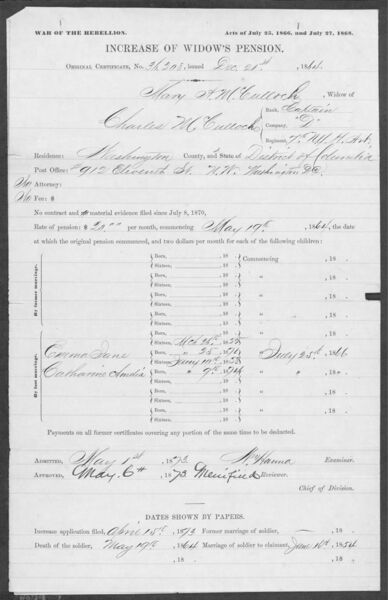 WAR OF THE REBELLION. Acts of July 25, 1866, and July 27, 1868.
INCREASE OF WIDOW'S PENSION.
ORIGINAL CERTIFICATE, No. 36,203, issued Dec. 21st, 1864.
Mary A McCulloch, Widow of
Charles McCulloch
Rank, Captain
Company, "D"
Regiment, N.Y. H. Art.
Residence: Washington County, and State of District of Columbia
Post Office: 912 Eleventh St. N.W. Washington D.C.
No Attorney:
No Fee:
No contract and no material evidence filed since July 8, 1870,
Rate of pension: $20.00 per month, commencing May 19th, 1864, the date
at which the original pension commenced, and two dollars per month for each of the following children:
By former marriage.
Born, , 18 Commencing , 18
Sixteen, , 18
Born, , 18 " , 18
Sixteen, , 18
Born, , 18 " , 18
Sixteen, , 18
Born, , 18 " , 18
Sixteen, , 18
By last marriage.
Born, , 18
Sixteen, , 18
Emma Jane Born, , 18 July 25th, 1866
Sixteen, " 25, 18
Catharine Born, , 1858 " " , 18 "
Sixteen, " 9th, 1874
Born, , 18 " , 18
Sixteen, , 18
Born, , 18 " , 18
Sixteen, , 18
Born, , 18 " , 18
Sixteen, , 18
Payments on all former certificates covering any portion of the same time to be deducted.
ADMITTED, May 1st, 1873. Hanna Examiner.
APPROVED, May 6th, 1873. Merifield Reviewer.
Chief of Division.
DATES SHOWN BY PAPERS.
Increase application filed, April 15th, 1873 Former marriage of soldier, , 18
Death of the soldier, May 19th, 1864 Marriage of soldier to claimant, June 10th, 1854
, 18 , 18